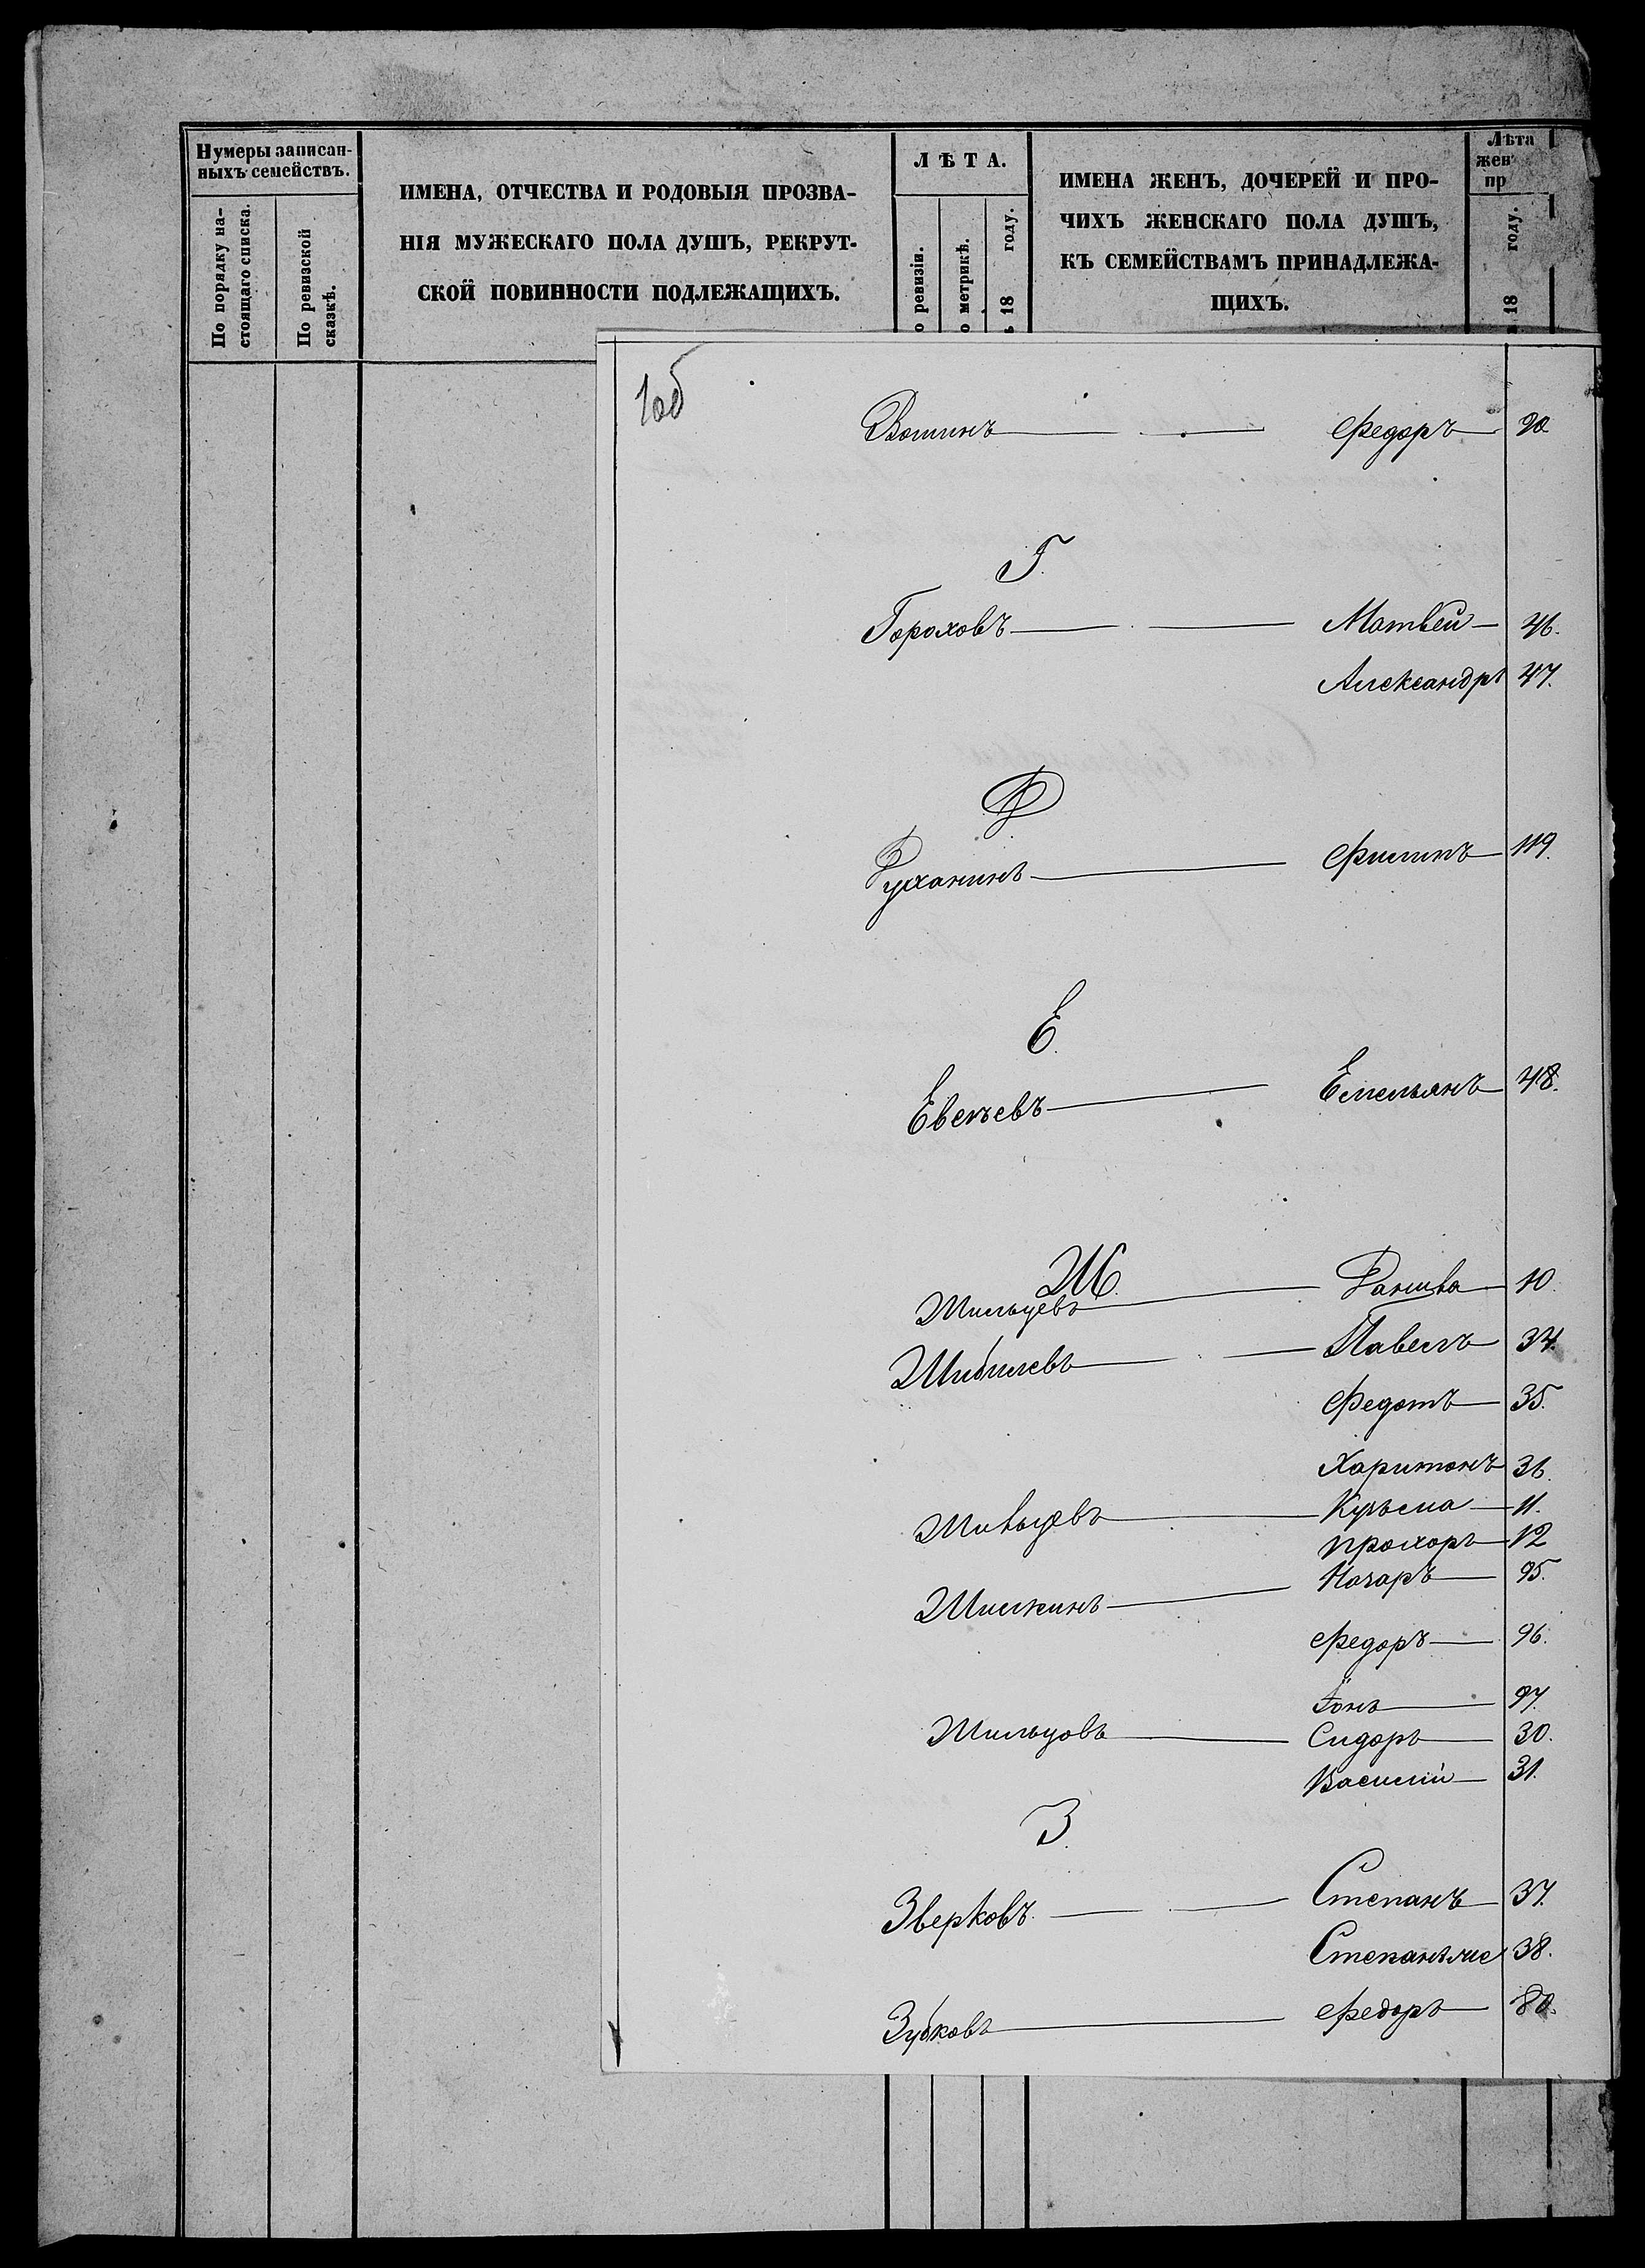 Нумеры записан-
ныхъ семействъ.
По порядку на-
стоящаго списка.
По ревизской
сказкѣ.
ИМЕНА, ОТЧЕСТВА И РОДОВЫЯ ПРОЗВА-
НІЯ МУЖЕСКАГО ПОЛА ДУШЪ, РЕКРУТ-
СКОЙ ПОВИННОСТИ ПОДЛЕЖАЩИХЪ.
ЛѢТА.
о ревизіи.
о метрикѣ.
18 году.
ИМЕНА ЖЕНЪ, ДОЧЕРЕЙ И ПРО-
ЧИХЪ ЖЕНСКАГО ПОЛА ДУШЪ,
КЪ СЕМЕЙСТВАМЪ ПРИНАДЛЕЖА-
ЩИХЪ.
Лѣта
жен
пр
18 году.
1об
Федоръ
Г.
Гороховъ Матвей 46.
Александръ 47.
Д
Филипъ 119.
Е.
Емельянъ 48.
Ж.
Жильцевъ Данила 10.
Павелъ 34.
Федотъ 35.
Харитонъ 36.
Кузьма 11.
Прохоръ 12
Назаръ 95.
Федоръ 96.
97.
Жильцовъ Сидоръ 30.
Василій 31.
З.
Зверковъ Степанъ 37.
Степанъ же 38.
Зубковъ Федоръ 80.